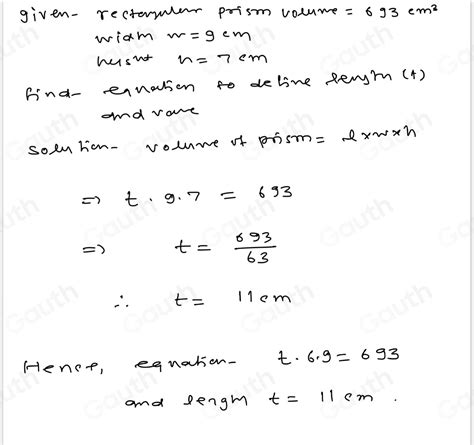 given- rectangular prism volume = 693 cm³
width w = 9 cm
height h = 7 cm
find- equation to define length (t)
and value
solution- volume of prism = l×w×h
=> t . 9 . 7 = 693
=> t = 693/63
∴ t = 11 cm
Hence, equation- t . 6.9 = 693
and length t = 11 cm .